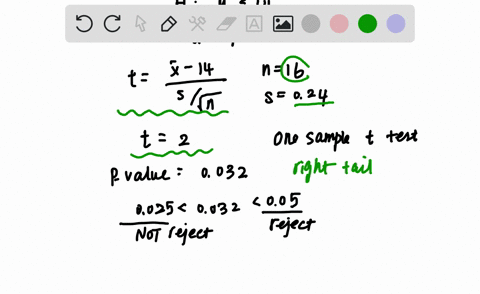 t = x̄ - 14 / s/√n
n = 16
s = 0.24
t = 2
One sample t test
P.value = 0.032
right tail
0.025 < 0.032 < 0.05
NOT reject
reject